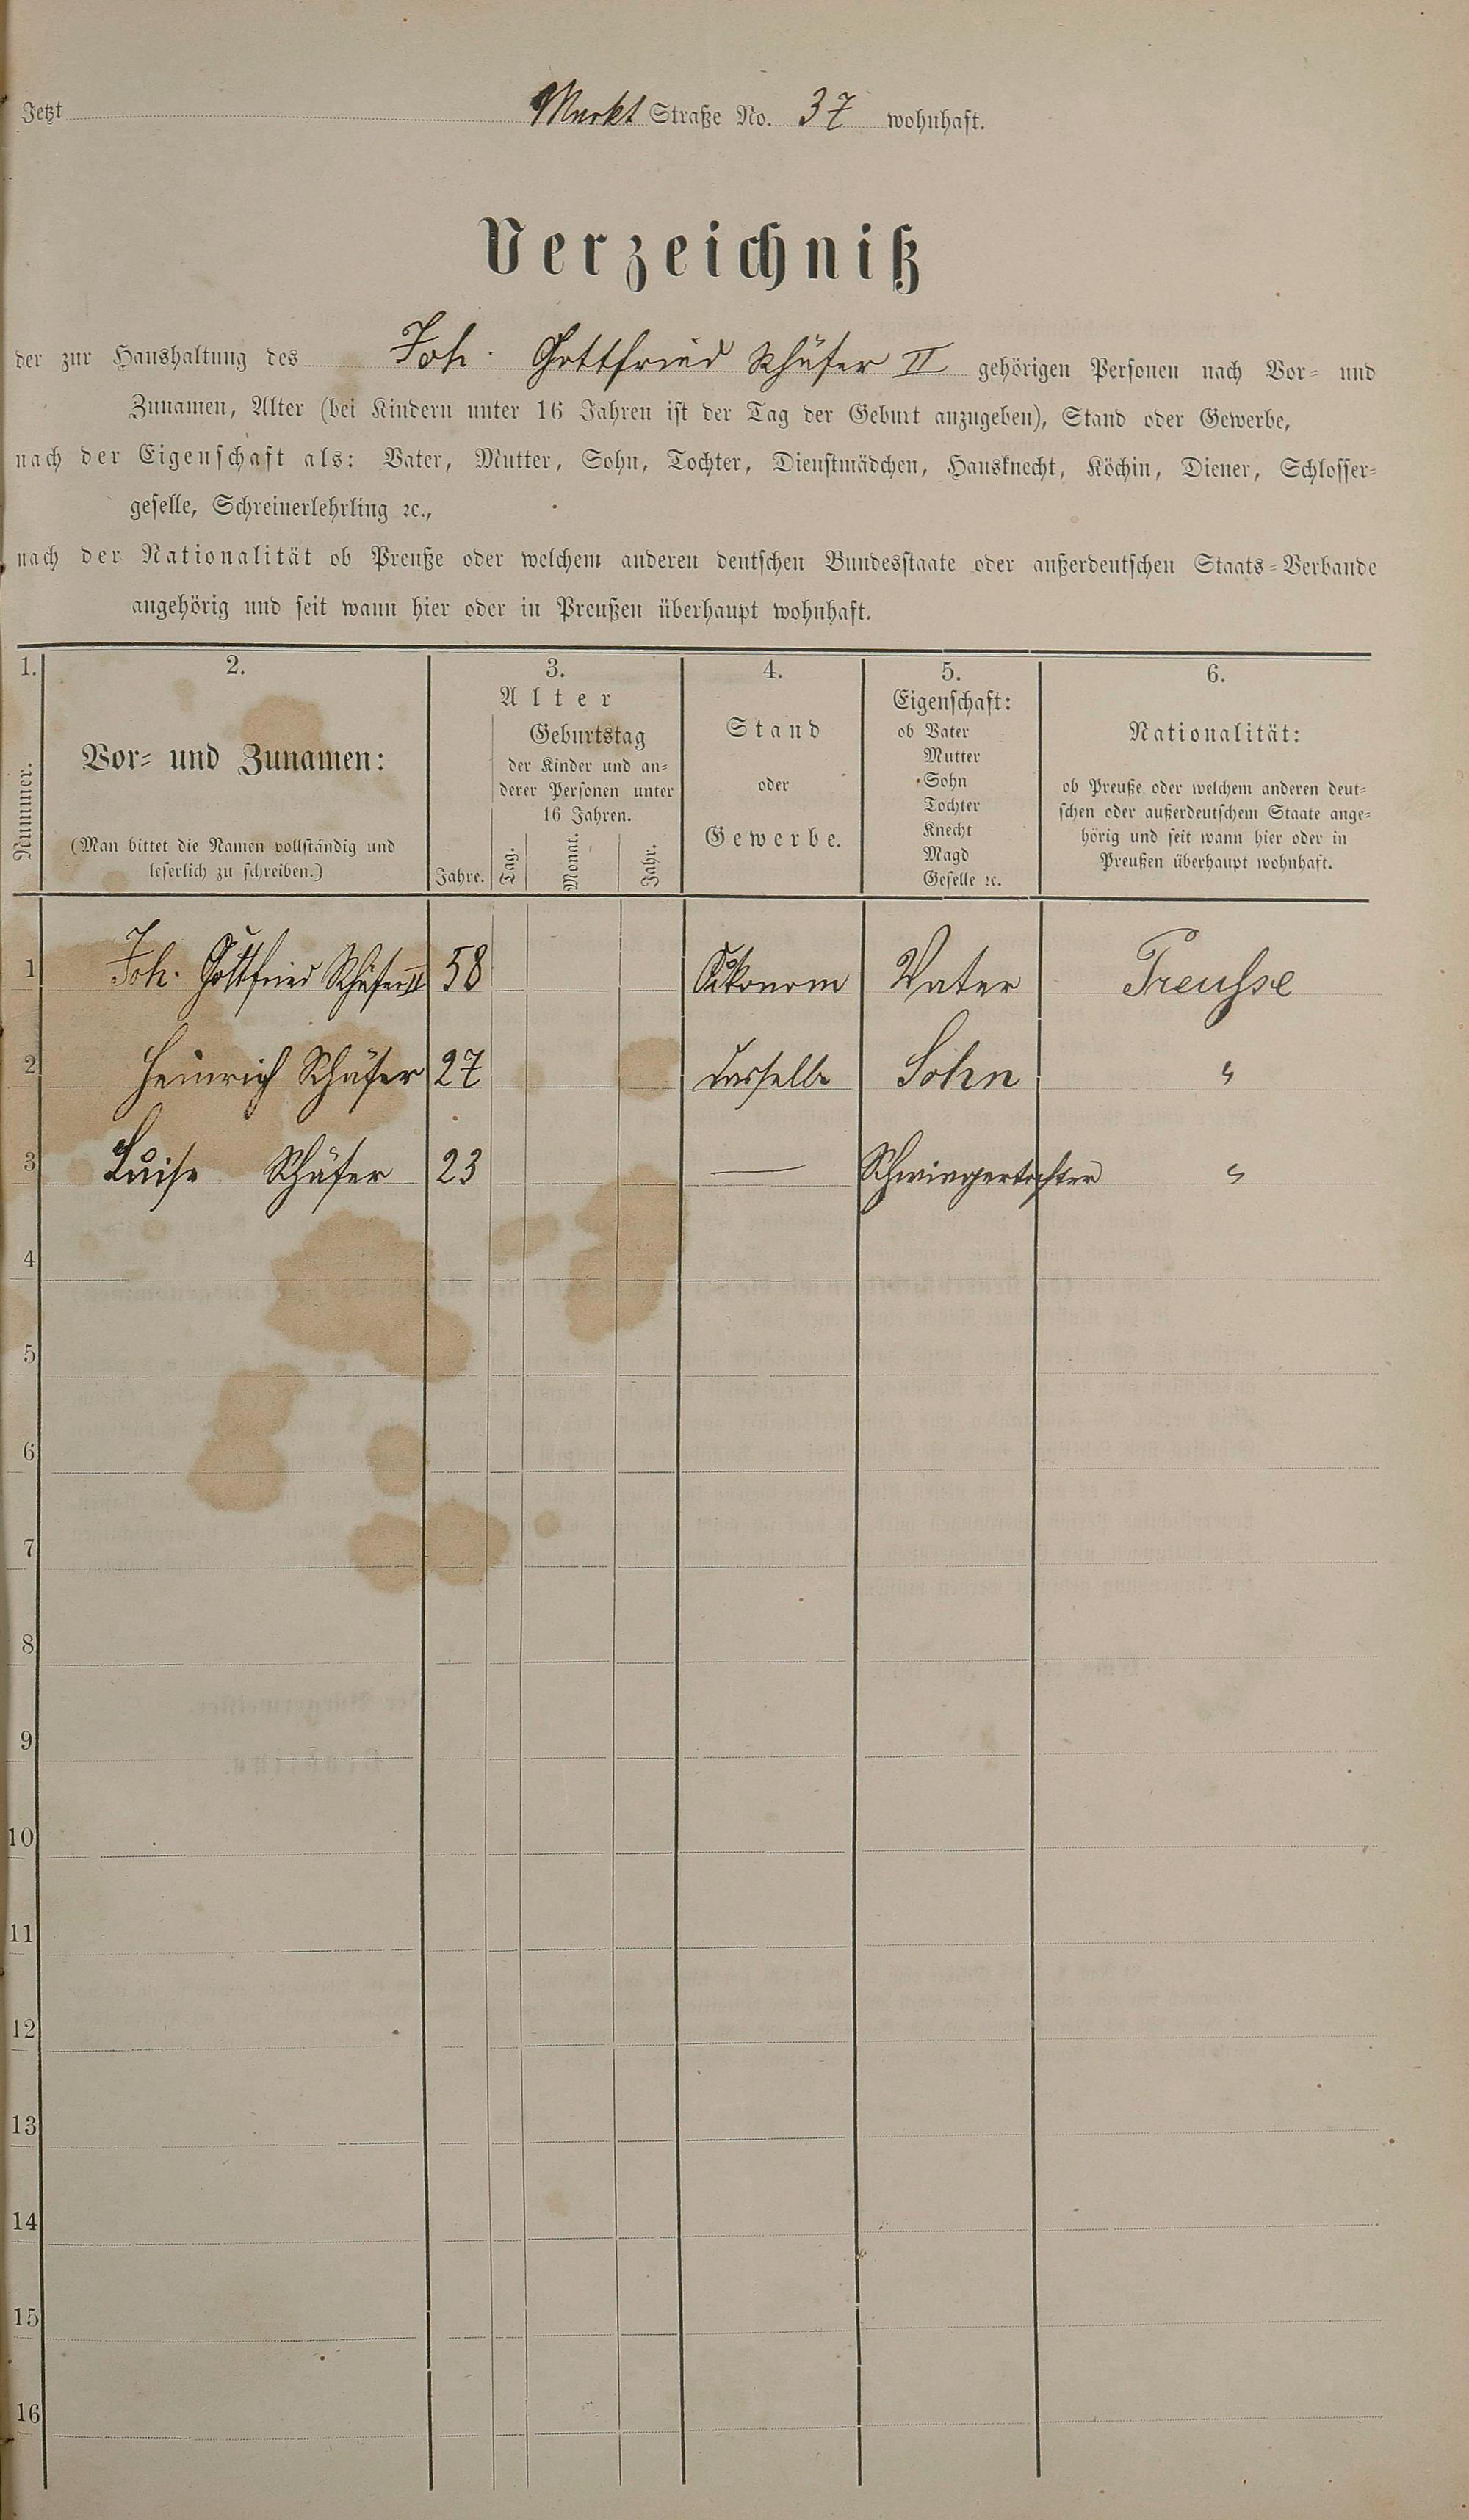 Jetzt Markt Straße No. 37 wohnhaft.
Verzeichniß
der zur Haushaltung des Joh. Gottfried Schäfer II gehörigen Personen nach Vor- und
Zunamen, Alter (bei Kindern unter 16 Jahren ist der Tag der Geburt anzugeben), Stand oder Gewerbe,
nach der Eigenschaft als: Vater, Mutter, Sohn, Tochter, Dienstmädchen, Hausknecht, Köchin, Diener, Schlosser-
geselle, Schreinerlehrling ꝛc.,
nach der Nationalität ob Preuße oder welchem anderen deutschen Bundesstaate oder außerdeutschen Staats-Verbande
angehörig und seit wann hier oder in Preußen überhaupt wohnhaft.
1.
Nummer.
2.
Vor- und Zunamen:
(Man bittet die Namen vollständig und
leserlich zu schreiben.)
3.
Alter
Jahre.
Geburtstag
der Kinder und an-
derer Personen unter
16 Jahren.
Tag. Monat. Jahr.
4.
Stand
oder
Gewerbe.
5.
Eigenschaft:
ob Vater
Mutter
Sohn
Tochter
Knecht
Magd
Geselle ꝛc.
6.
Nationalität:
ob Preuße oder welchem anderen deut-
schen oder außerdeutschem Staate ange-
hörig und seit wann hier oder in
Preußen überhaupt wohnhaft.
1 Joh. Gottfried Schäfer II 58 Oekonom Vater Preusse
2 Heinrich Schäfer 27 dasselbe Sohn "
3 Luise Schäfer 23 — Schwiegertochter "
4
5
6
7
8
9
10
11
12
13
14
15
16